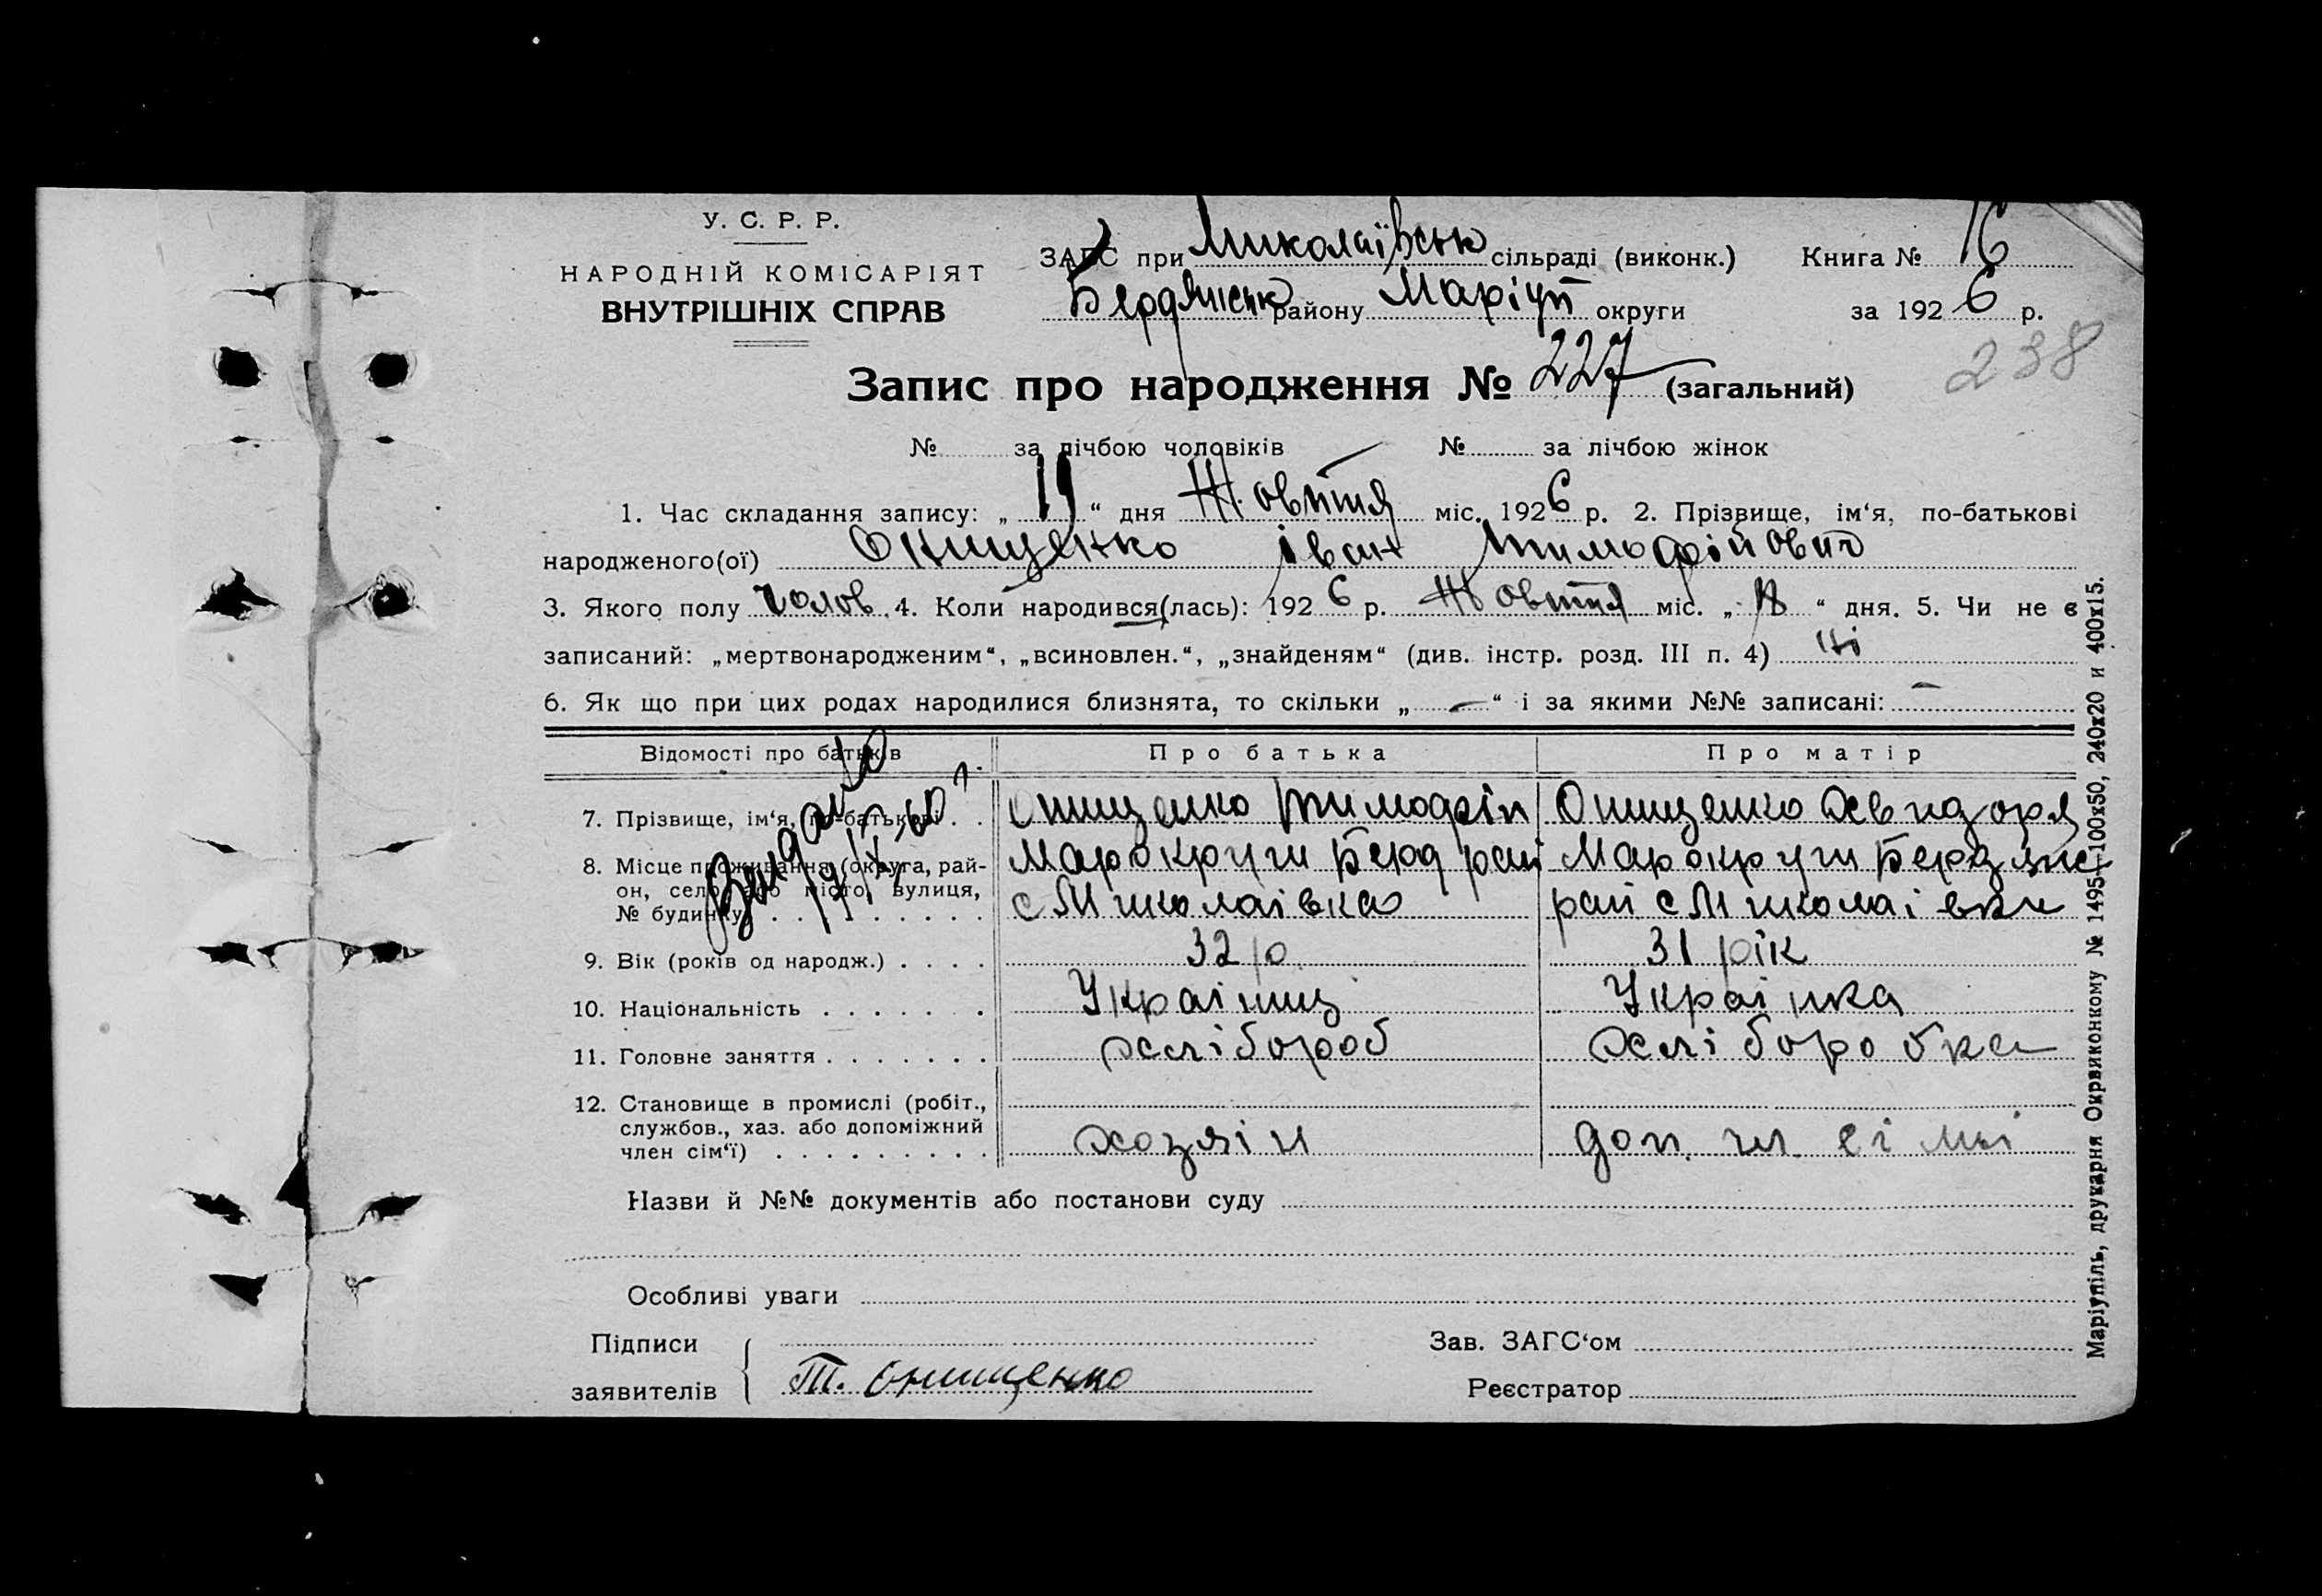 У. С. Р. Р.
НАРОДНІЙ КОМІСАРІЯТ
ВНУТРІШНІХ СПРАВ
ЗАГС при Миколаївськ сільраді (виконк.) Книга № 16
Бердянськ району Маріуп округи за 1926 р.
238
Запис про народження № 227 (загальний)
№ за лічбою чоловіків № за лічбою жінок
1. Час складання запису: „19“ дня Жовтня міс. 1926 р. 2. Прізвище, ім‘я, по-батькові
народженого(ої) Онищенко Іван Тимофійович
3. Якого полу чолов 4. Коли народився(лась): 1926 р. Жовтня міс. „ “ дня. 5. Чи не є
записаний: „мертвонародженим“, „всиновлен.“, „знайденям“ (див. інстр. розд. III п. 4) ні
6. Як що при цих родах народилися близнята, то скільки „—“ і за якими №№ записані: —
Відомості про батьків Про батька Про матір
7. Прізвище, ім‘я, по-батькові . . Онищенко Тимофій Онищенко Хевидоря
8. Місце проживання (округа, рай- Марокруги Берд рай Марокруги Бердянс
он, село або місто, вулиця, с Миколаівка рай с Миколаівки
№ будинку) . . . . . . . . .
9. Вік (років од народж.) . . . . 32 р. 31 рік
10. Національність . . . . . . . Украіниц Украінка
11. Головне заняття . . . . . . . хлібороб хліборобка
12. Становище в промислі (робіт.,
службов., хаз. або допоміжний
член сім‘ї) . . . . . . . . . хозяін доп. чл. сімьі
Назви й №№ документів або постанови суду
Особливі уваги
Підписи Зав. ЗАГС‘ом
заявителів Т. Онищенко Реєстратор
Маріупіль, друкарня Окрвиконкому № 1495—100х50, 240х20 и 400х15.